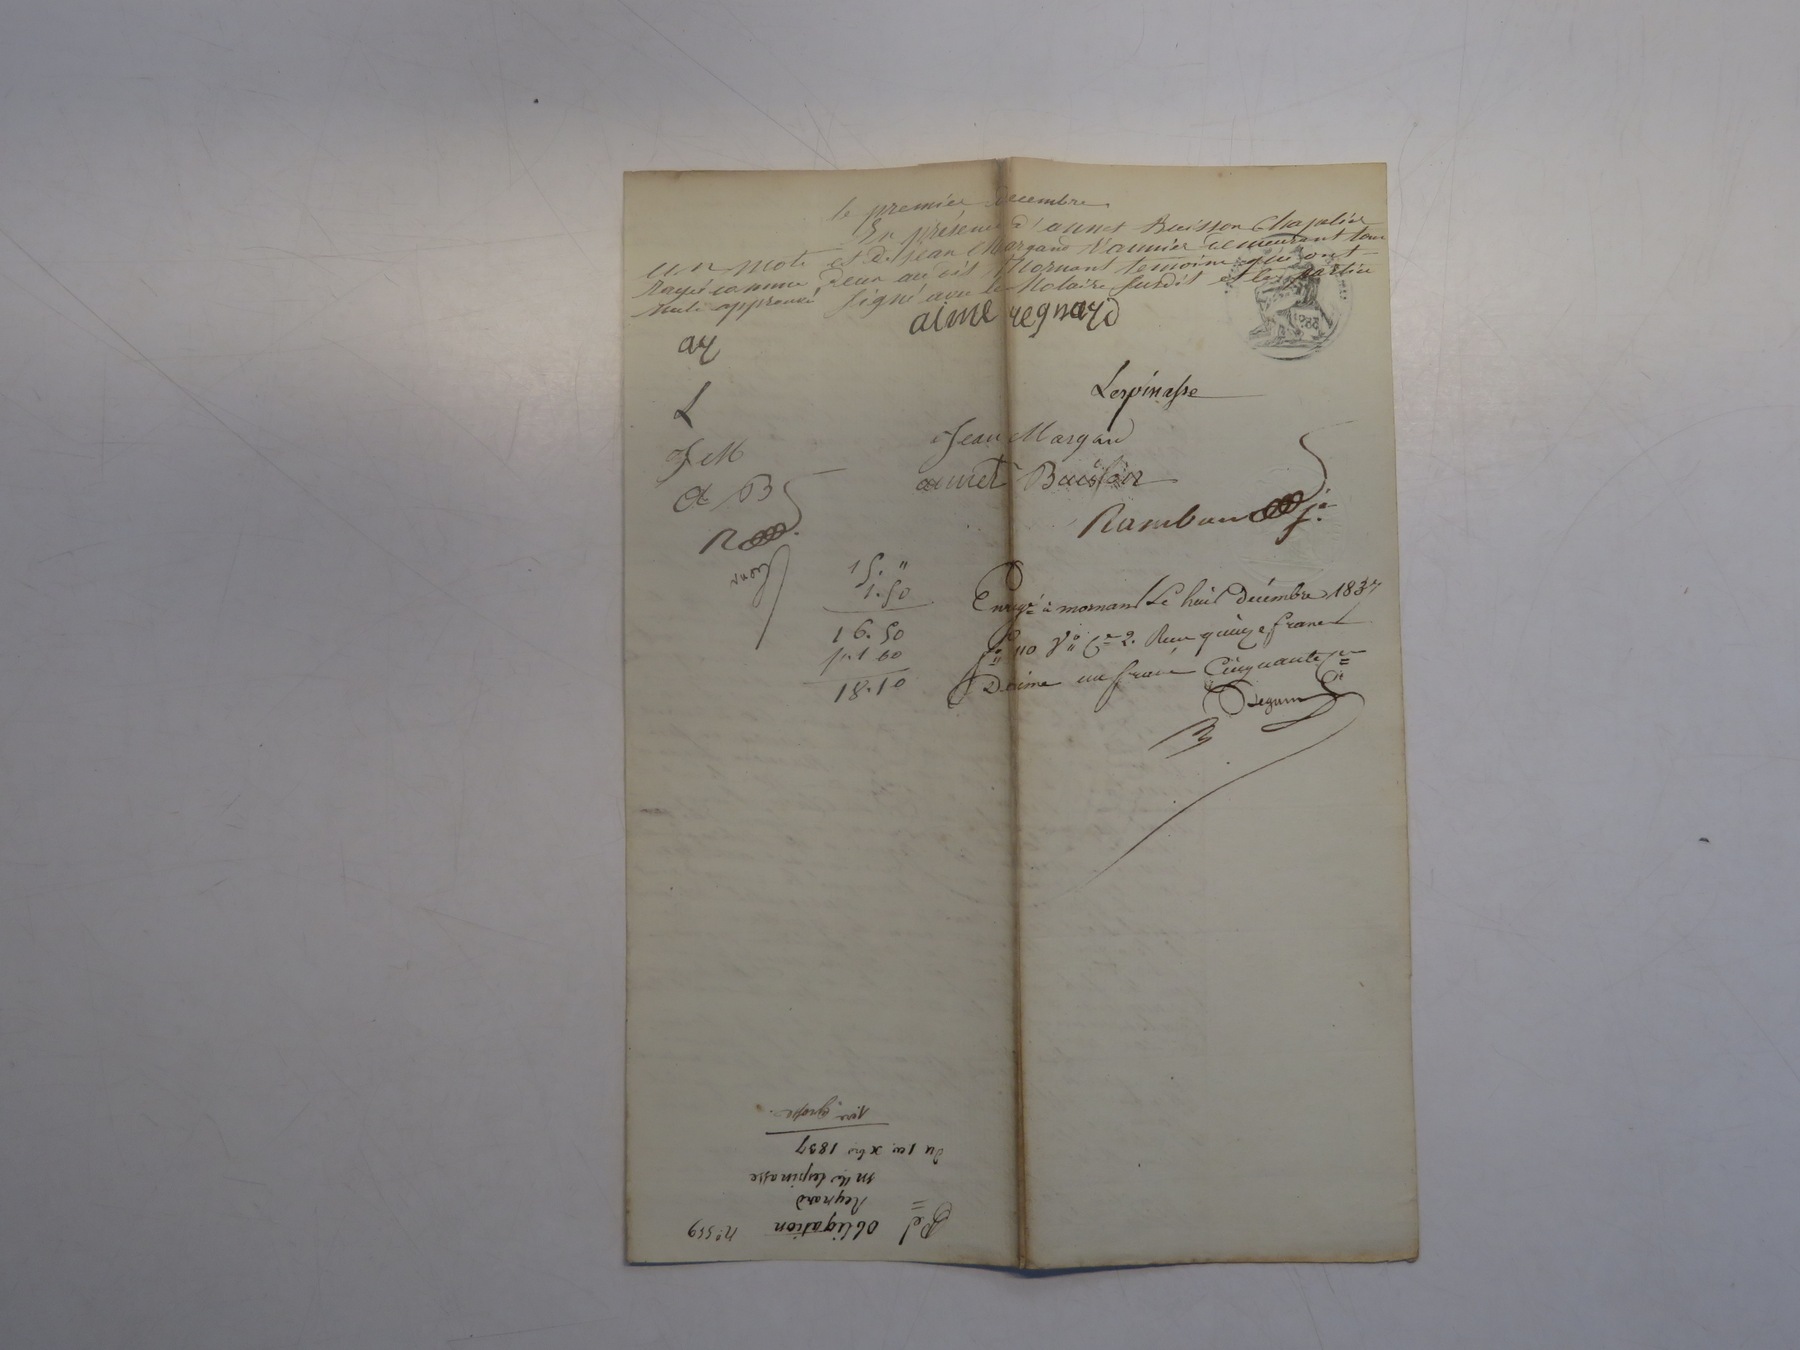 le premier Decembre.
En présence d'annet Buisson Chapelier
un mot et de Jean Margand Vannier demeurant tous
Rayé comme deux au dit Mornant temoins qui ont
nul approuvé signé avec le Notaire susdit et les parties
aimé regnard
ar
Lespinasse
L
Jean Margand
JM
annet Buisson
A B
Rambaud je
R
15. "
1.50
16.50
1.60
18.10
Enregé à mornant Le huit Décembre 1837
fo 110 Vo Ce 2. Reçu quinze francs
Décime un franc Cinquante ces
Pel
obligation No 559
Reynard
m lespinasse
du 1er xbre 1837
1ere grosse.